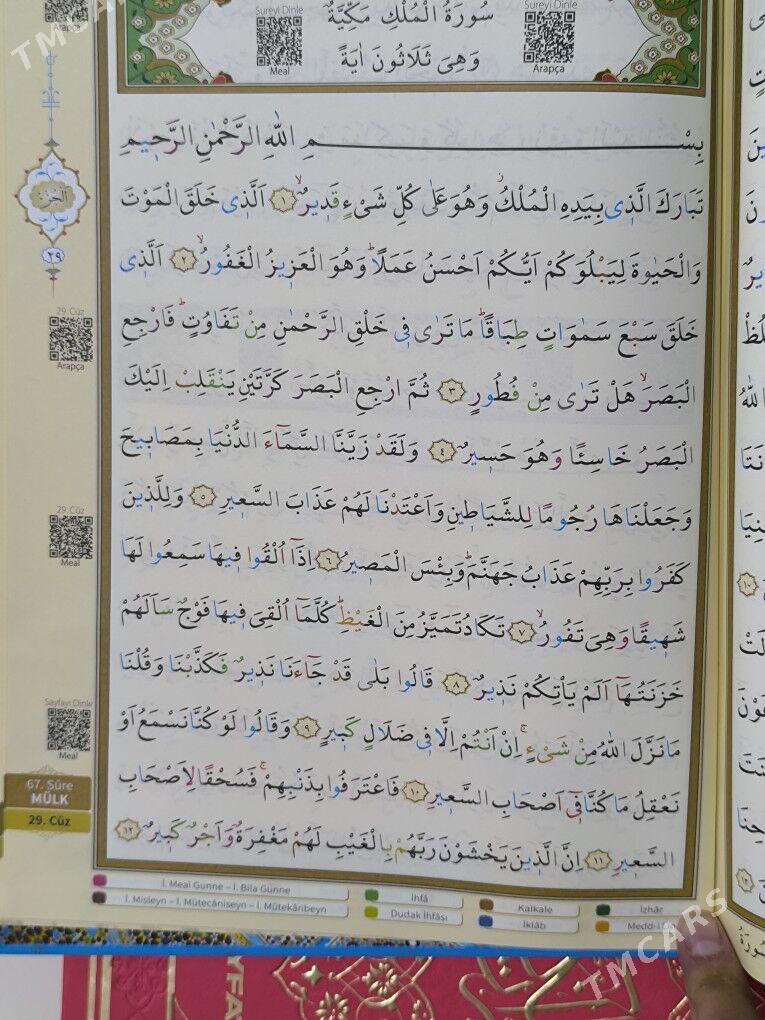 Arapça
TMCARS
Sureyi Dinle
Meal
سُورَةُ الْمُلْكِ مَكِّيَّةٌ
وَهِىَ ثَلَاثُونَ اٰيَةً
Sureyi Dinle
Arapça
بِسْمِ اللّٰهِ الرَّحْمٰنِ الرَّحٖيمِ
تَبَارَكَ الَّذٖى بِيَدِهِ الْمُلْكُ وَهُوَ عَلٰى كُلِّ شَیْءٍ قَدٖيرٌۙ ﴿١﴾ اَلَّذٖى خَلَقَ الْمَوْتَ
وَالْحَيٰوةَ لِيَبْلُوَكُمْ اَيُّكُمْ اَحْسَنُ عَمَلًاؕ وَهُوَ الْعَزٖيزُ الْغَفُورُۙ ﴿٢﴾ اَلَّذٖى
خَلَقَ سَبْعَ سَمٰوَاتٍ طِبَاقًاؕ مَا تَرٰى فٖى خَلْقِ الرَّحْمٰنِ مِنْ تَفَاوُتٍؕ فَارْجِعِ
الْبَصَرَۙ هَلْ تَرٰى مِنْ فُطُورٍ ﴿٣﴾ ثُمَّ ارْجِعِ الْبَصَرَ كَرَّتَيْنِ يَنْقَلِبْ اِلَيْكَ
الْبَصَرُ خَاسِئًا وَهُوَ حَسٖيرٌ ﴿٤﴾ وَلَقَدْ زَيَّنَّا السَّمَٓاءَ الدُّنْيَا بِمَصَابٖيحَ
وَجَعَلْنَاهَا رُجُومًا لِلشَّيَاطٖينِ وَاَعْتَدْنَا لَهُمْ عَذَابَ السَّعٖيرِ ﴿٥﴾ وَلِلَّذٖينَ
كَفَرُوا بِرَبِّهِمْ عَذَابُ جَهَنَّمَؕ وَبِئْسَ الْمَصٖيرُ ﴿٦﴾ اِذَٓا اُلْقُوا فٖيهَا سَمِعُوا لَهَا
شَهٖيقًا وَهِىَ تَفُورُۙ ﴿٧﴾ تَكَادُ تَمَيَّزُ مِنَ الْغَيْظِؕ كُلَّمَٓا اُلْقِىَ فٖيهَا فَوْجٌ سَاَلَهُمْ
خَزَنَتُهَٓا اَلَمْ يَاْتِكُمْ نَذٖيرٌ ﴿٨﴾ قَالُوا بَلٰى قَدْ جَٓاءَنَا نَذٖيرٌ فَكَذَّبْنَا وَقُلْنَا
مَا نَزَّلَ اللّٰهُ مِنْ شَیْءٍۚ اِنْ اَنْتُمْ اِلَّا فٖى ضَلَالٍ كَبٖيرٍ ﴿٩﴾ وَقَالُوا لَوْ كُنَّا نَسْمَعُ اَوْ
نَعْقِلُ مَا كُنَّا فٖٓى اَصْحَابِ السَّعٖيرِ ﴿١٠﴾ فَاعْتَرَفُوا بِذَنْبِهِمْۚ فَسُحْقًا لِاَصْحَابِ
السَّعٖيرِ ﴿١١﴾ اِنَّ الَّذٖينَ يَخْشَوْنَ رَبَّهُمْ بِالْغَيْبِ لَهُمْ مَغْفِرَةٌ وَاَجْرٌ كَبٖيرٌ ﴿١٢﴾
الجزء
٢٩
29. Cüz
Arapça
29. Cüz
Meal
Sayfayı Dinle
Meal
67. Sûre
MÜLK
29. Cüz
İ. Meal Gunne – İ. Bila Gunne
İ. Misleyn – İ. Mütecâniseyn – İ. Mütekâribeyn
İhfâ
Dudak İhfâsı
Kalkale
İklâb
İzhâr
TMCARS